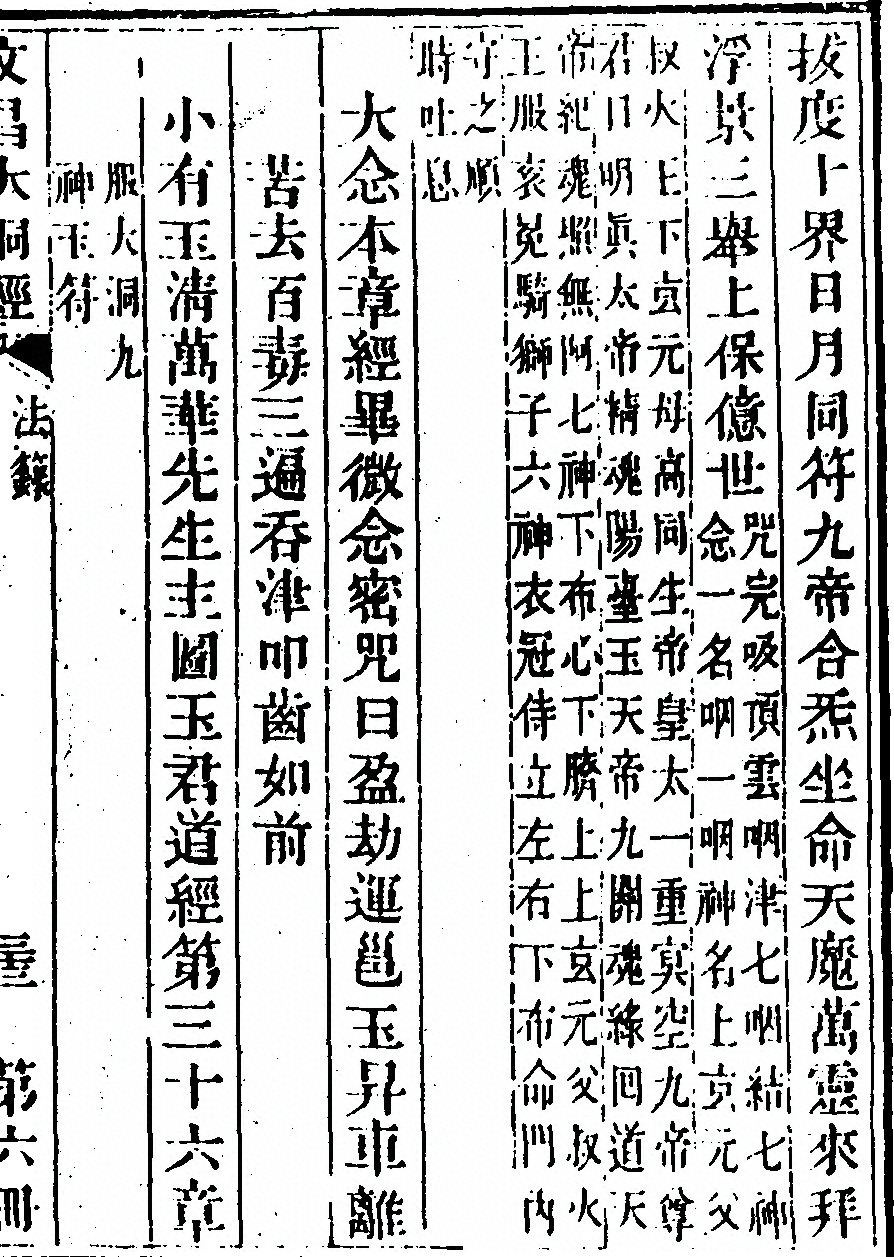 拔度十界日月同符九帝合炁坐命天魔萬靈來拜
浮景三舉上保億世
咒完吸頂雲咽津七咽結七神
念一名咽一咽神名上玄元父
叔火上下玄元母高同生帝皇太一重冥空九帝尊
君日明眞太帝精魂陽臺玉天帝九關魂綠回道天
帝紀魂照無阿七神下布心下臍上上玄元父叔火
王服衮冕騎獅子六神衣冠侍立左右下布命門內
守之順
時吐息
大念本章經畢微念密咒曰盈劫運邕玉昇車離
苦去百毒三遍吞津叩齒如前
小有玉清萬華先生主圖玉君道經第三十六章
服大洞九
神玉符
文昌大洞經
法籙
第六冊